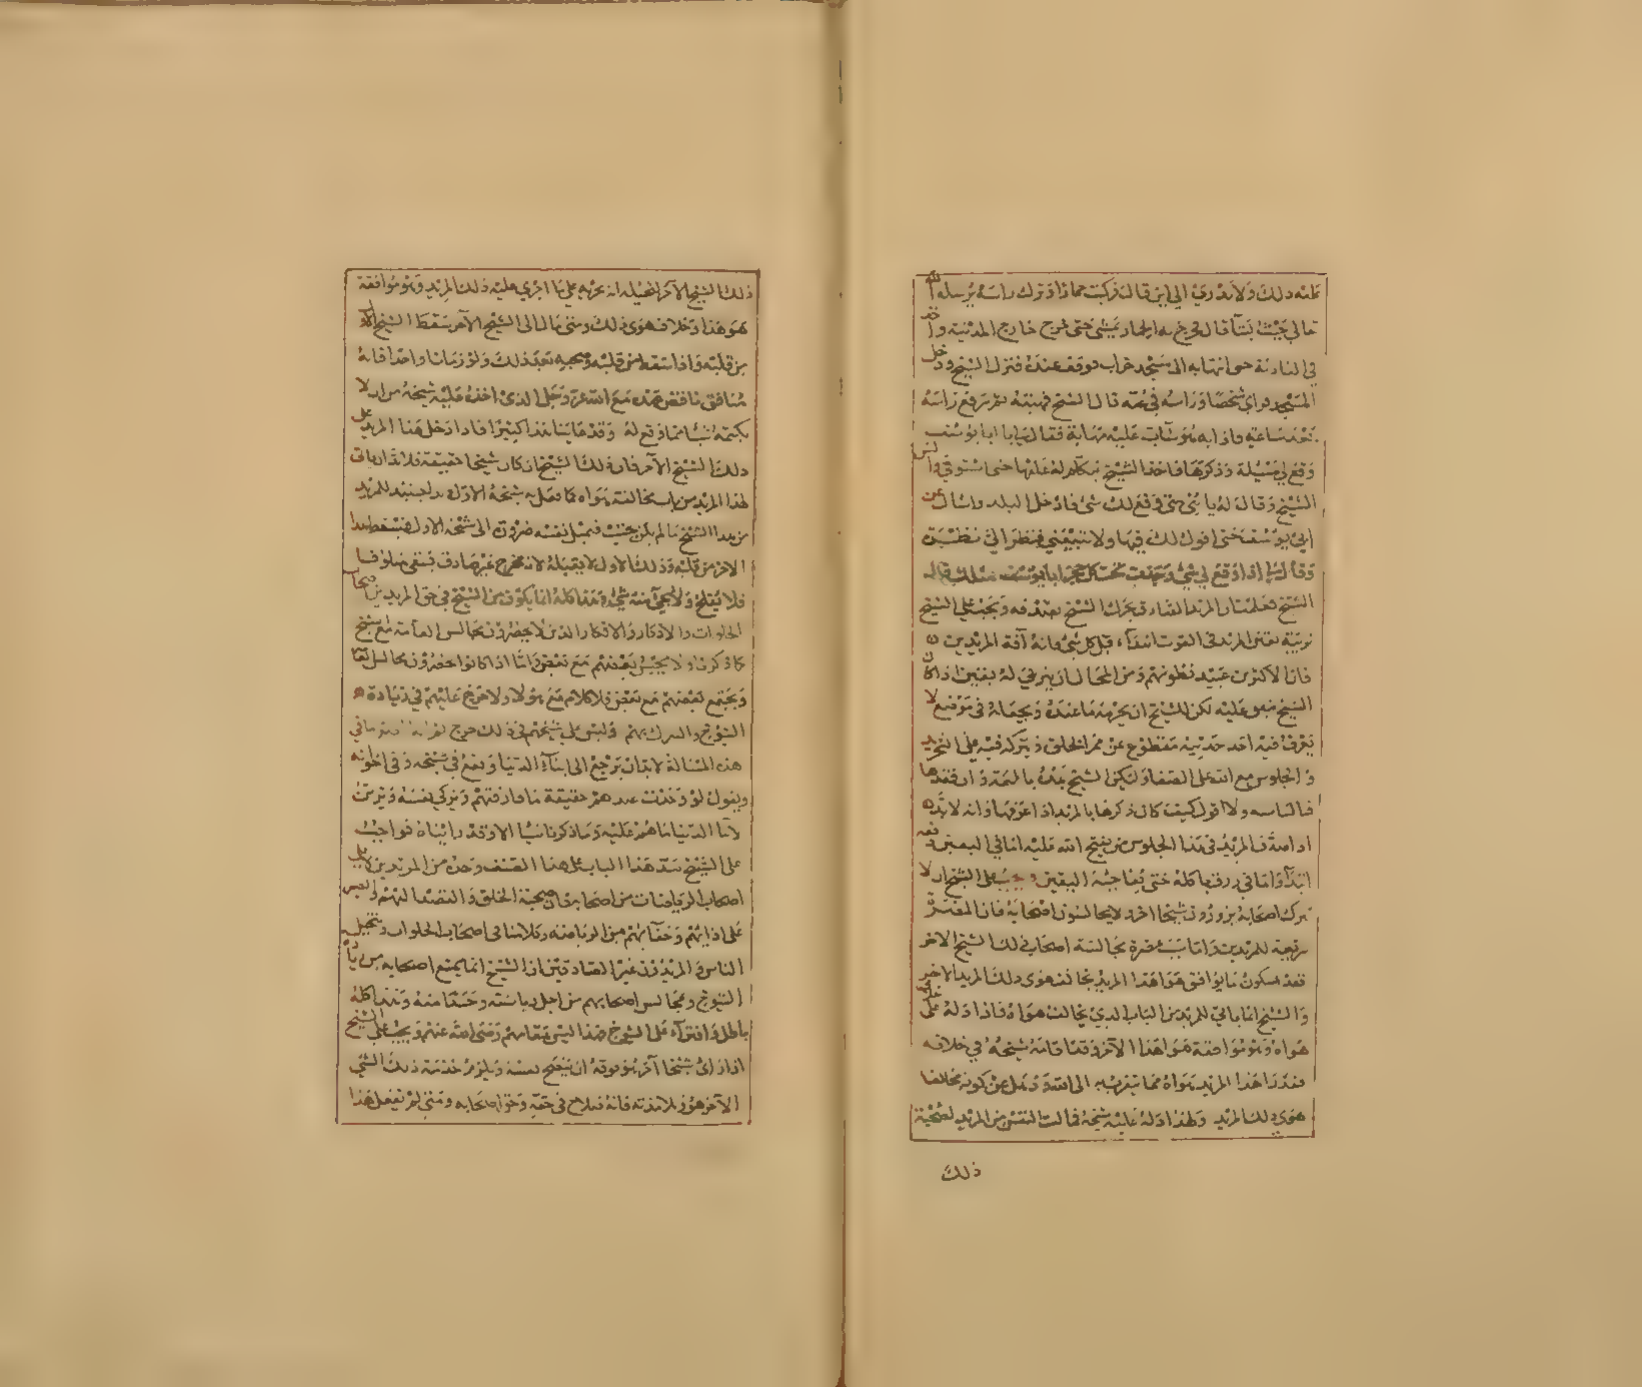 عليه ذلك ولا ندري الى اين قال فركبت حمارا وترك راسه يرسله الله
تعالى حيث يشا قال فخرج به الحمار يمشي حتى خرج خارج المدينة واخذ
في البادية حتى انتهى به الى مسجد خراب فوقف عنده فنزل الشيخ ودخل
المسجد فراى شخصا وراسه في كمه قال الشيخ فهبته ثم رفع راسه
بعد ساعة واذا به هو شاب عليه مهابة فقال يا با ابا يوسف
وقع لي مسئلة وذكرها فاخذ الشيخ يتكلم له عليها حتى استوفى وانس
الشيخ وقال له يا بني متى وقع لك شي فادخل البلد واسال عن
ابي يوسف حتى اقول لك فيها ولا تتبعني فنظر الي
وقال اذا وقع لي شي قال
الشيخ فعلمت ان المريد الصادق يحرك الشيخ بصدقه ويجب على الشيخ
تربية المريد في القوت ابتداء قبل كل شي فانه آفة المريدين
فان الاكثر من عبيد بطونهم ومن المحال ان يبرهن له يقين اذا كان
الشيخ عليه لكن للشيخ ان يحرمه ما عنده ويجعله في موضع لا
يعرف فيه احد حديثه مقطوع عن ممر الخلق ويتركه فيه على التجريد
والجلوس مع الله على الصفا وليكن الشيخ يمده بالهمة وان فقدها
ولا اقول كيف كان ذكرها بالمريد اذا عرفها وانه لا بد
اذا صدق المريد في هذا الجلوس من يفتح الله عليه اما في اليقين
ابتدا واما في رزق ياكله حتى يفاجئه اليقين ويجب على الشيخ ان لا
يترك اصحابه يزورون شيخا اخر ولا يجالسون اصحابه فان المضرة
سريعة للمريدين واما سبب مضرة مجالسة اصحاب ذلك الشيخ الاخر
فقد يكون ما يوافق هوا هذا المريد يخالف هوى ذلك المريد الاخر
والشيخ انما ياتي للمريد من الباب الذي يخالف هواه فاذا دله على
هواه وهو موافقة هوا هذا الآخر وقد اقامه شيخه في خلافه
فقد راى هذا المريد هواه مما يتقرب به الى الله وذهل عن كونه مخالفا
هوى ذلك المريد ولهذا دله عليه شيخه فمالت النفس من المريد لصحبة
ذلك
ذلك الشيخ الآخر لتخيله انه يجريه على ما اجرى عليه ذلك المريد وهو موافقة
هو هذا وخلاف هوى ذلك ومتى مال الى الشيخ الآخر سقط الشيخ الاول
من قلبه واذا سقط من قلبه وصحبه بعد ذلك ولو زمانا واحدا فانه
منافق ناقض عهده مع الله عز وجل الذي اخذه عليه شيخه من ان لا
يكتمه شيئا مما وقع له وقد عاينا هذا كثيرا فاذا دخل هذا المريد على
ذلك الشيخ الآخر فان ذلك الشيخ ان كان شيخا حقيقة فلا بد ان ياتي
لهذا المريد من باب مخالفة هواه كما فعل به شيخه الاول
من هذا الشيخ ما لم يكن فيميل نفسه ضرورة الى شيخه الاول فيسقط هذا
الاخر من قلبه وذلك الاول لا يقبله لانه خرج غير صادق فيبقى متلوفا
فلا يفلح ولا يجي منه شي وهذا كله انما يكون من الشيخ في حق المريدين اصحاب
الخلوات والاذكار والافكار الذين لا يحضرون مجالس العامة مع شيخ
كما ذكرنا ولا يجتمع بعضهم مع بعض واما اذا كانوا يحضرون مجالس
ويجتمع بعضهم مع بعض فلا كلام مع هولا ولا حرج عليهم في زيادة
الشيوخ والتبرك بهم وليس على شيخهم في ذلك حرج
هذه المسالة لا بد ان يرجع الى ابناء الدنيا ويقع في شيخه وفي اخوانه
ويقول لو وجدت عندهم حقيقة ما فارقتهم ويزكي نفسه ويزين
لابنا الدنيا ما هم عليه وما ذكرنا شيا الا وقد رايناه فواجب
على الشيخ سد هذا الباب على هذا الصنف وحده من المريدين
اصحاب الرياضات من اصحابه فان صحبة الخلق
على اذايتهم وجفائهم من الرياضة وكلامنا في اصحاب الخلوات ويتخيل
الناس والمريدون غير الصادقين ان الشيخ انما يمنع اصحابه من
الشيوخ ومجالس اصحابهم من اجل رياسته وحسدا منه وهذا كله
باطل وافتراء على الشيوخ فهذا ليس مقامهم رضي الله عنهم ويجب على الشيخ
اذا راى شيخا آخر هو فوقه ان ينصح نفسه ويلزم خدمة ذلك الشيخ
الآخر هو وتلامذته فانه فلاح في حقه وحق اصحابه ومتى لم يفعل هذا